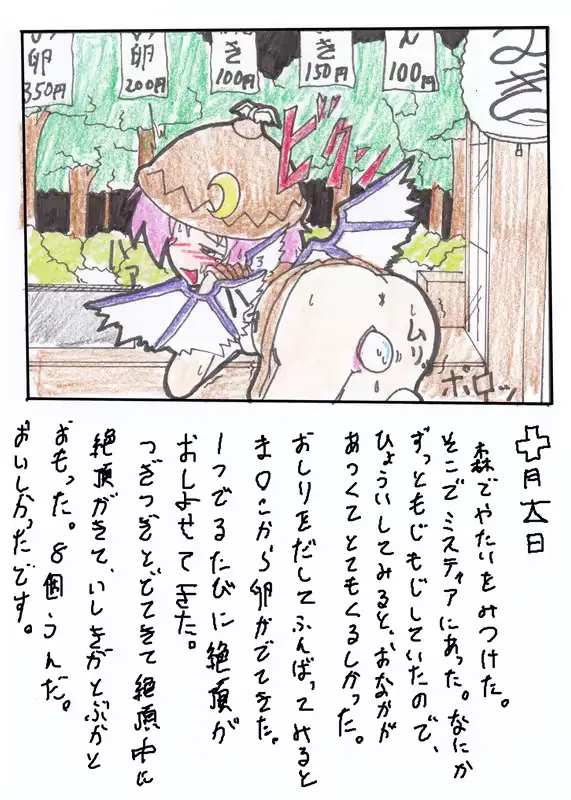 卵
350円
卵
200円
き
100円
き
150円
ん
100円
ビクン
ムリ
ボロッ
十月六日
森でやたいをみつけた。
そこでミスティアにあった。なにか
ずっともじもじしていたので、
ひょういしてみると、おなかが
あつくてとてもくるしかった。
おしりをだしてふんばってみると
ま〇こから卵がでてきた。
1つでるたびに絶頂が
おしよせてきた。
つぎつぎとでてきて絶頂中に
絶頂がきて、いしきがとぶかと
おもった。8個うんだ。
おいしかったです。